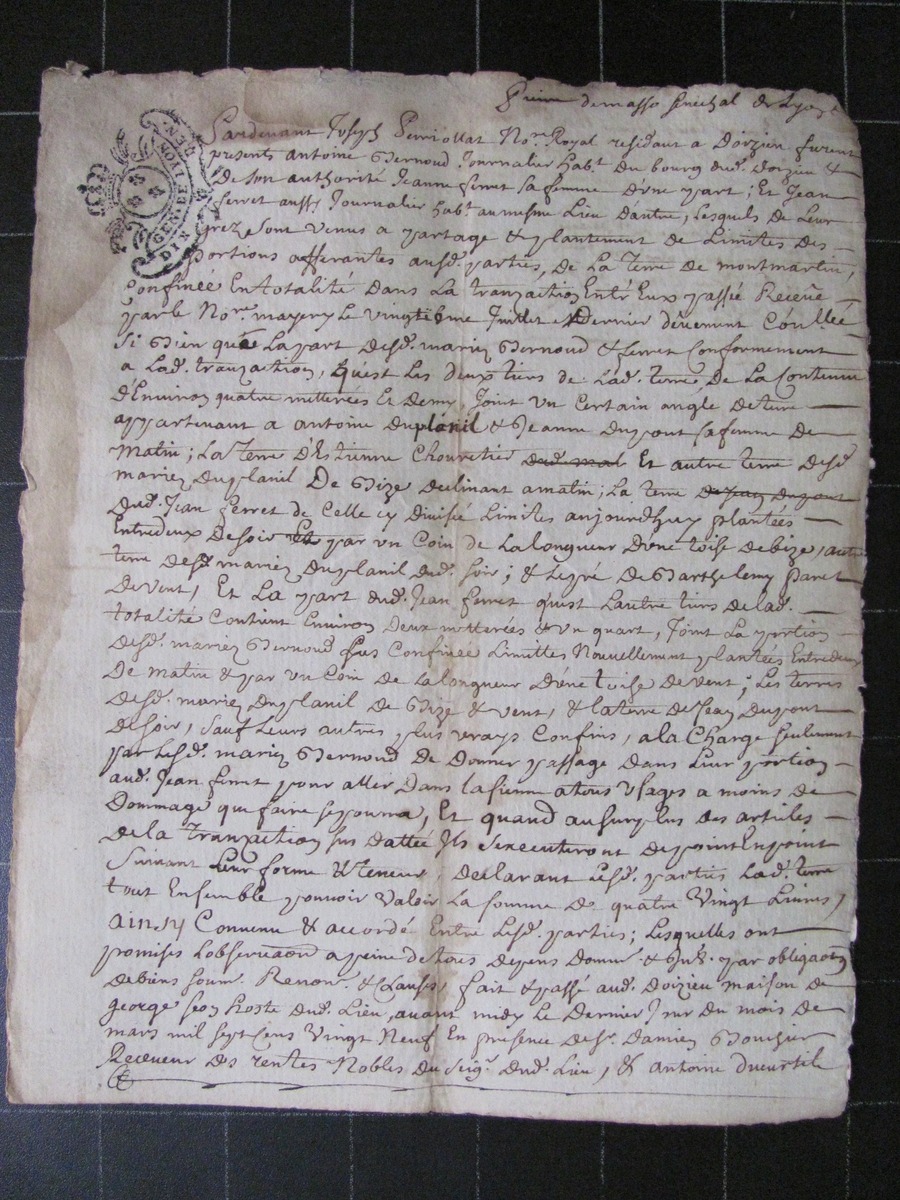 demasso senechal de Lyon
GEN. DE LYON
DIN
Pardevant Joseph Perriollat No.re Royal residant a Doizieu furent
presents Antoine Bernoud Journalier hab.t du bourg dud. doizieu &
De son authorité Jeanne ferret sa femme d'une part; Et Jean
ferret aussy Journalier hab.t au mesme Lieu d'autre, Lesquels de Leur
grez sont venus a partage & plantement de Limites des
portions afferantes ausd. parties, de La Terre de montmartin,
Confinée En totalité dans La tranzaction Entr'Eux passée Receüe
par le No.re mayery Le vingtième Juillet Dernier düement Coullée
Si Bien que La part desd. mariez Bernoud & ferret Conformement
a Lad. tranzaction, qu'est Les deux tiers de Lad. terre, De La Contenue
d'Environ quatre metterées Et demy, Joint un Certain angle de terre
appartenant a antoine duplanil & Jeanne dupont sa femme De
Matin; La Terre d'Estienne Chouretier dud. mat Et autre terre desd.
mariez duplanil De Bize declinant a matin; La terre de Jean dupont
dud. Jean ferret de Celle cy divisée Limites aujourd'huy plantées
Entredeux De soir Et par un Coin de La longueur d'une toise de bize, autre
terre desd. mariez duplanil dud. soir; & Le pré De Barthelemy Paret
De vent, Et La part dud. Jean ferret qu'est L'autre tiers de lad.
totalité Contient Environ Deux metterées & un quart, Joint La portion
desd. mariez Bernoud sus Confinée Limittes Nouvellement plantées Entredeux
De matin & par un Coin de La longueur d'une toise de vent; Les terres
desd. mariez duplanil de Bize & vent, & la terre de Jean dupont
de soir, sauf Leurs autres plus vrays Confins, a la Charge seulement
par Lesd. mariez Bernoud de Donner passage dans Leur portion
aud. Jean ferret pour aller dans la sienne a tous Usages a moins de
Dommage que faire se pourra, Et quand au surplus des articles
de la Tranzaction sus dattée Ils s'executeront de point En point
Suivant Leur forme & teneur, declarant Lesd. parties Lad. terre
tout Ensemble pouvoir valoir La somme de quatre Vingt Livres,
ainsy Convenu & accordé Entre Lesd. parties; Lesquelles ont
promises L'observaon a peine de tous depens domm. & Int. par obligaon
de biens soum. Renon. & Clauses, fait & passé aud. Doizieu maison de
george seon hoste dud. Lieu, avant midy Le Dernier Jour du mois de
mars mil sept Cens Vingt Neuf En presence de s.r Damien Bonijur
Receveur des rentes Nobles du seig.r dud. Lieu, & antoine ducurtil